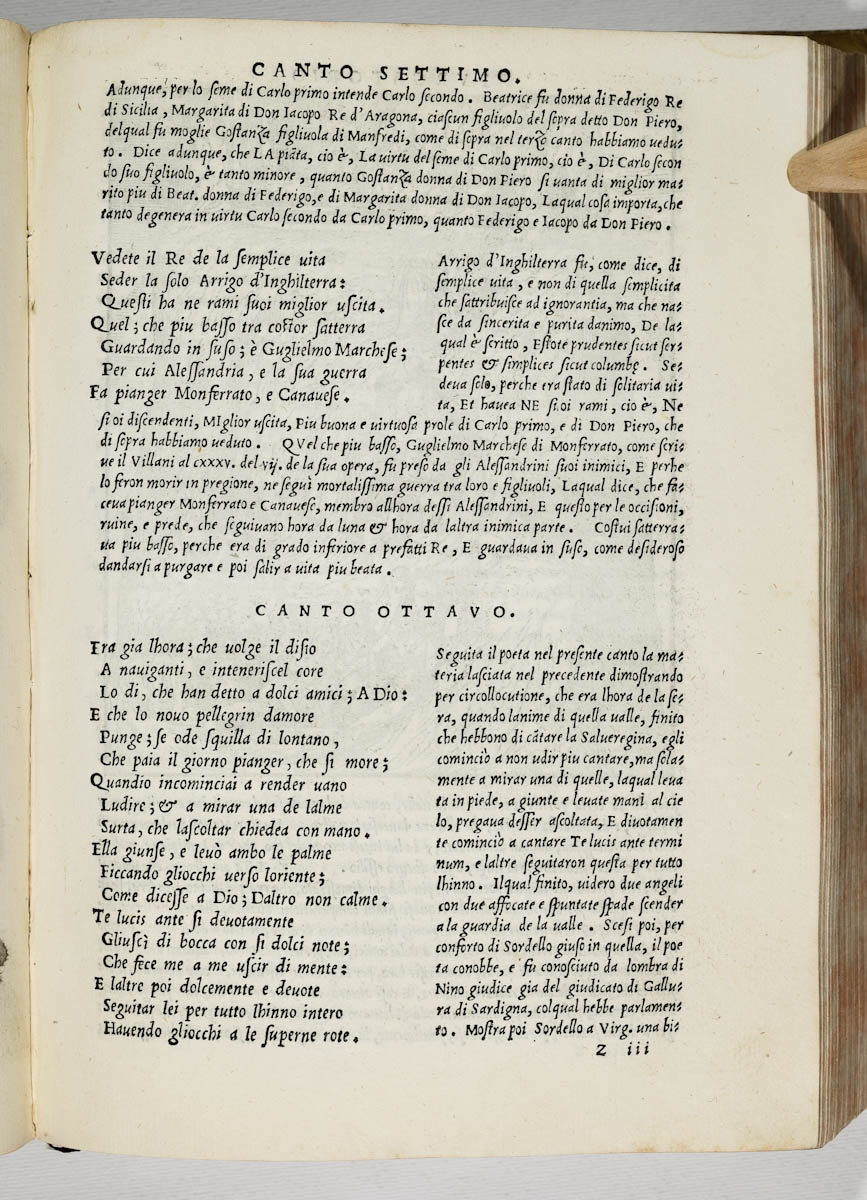 CANTO SETTIMO.
Adunque, per lo seme di Carlo primo intende Carlo secondo. Beatrice fu donna di Federigo Re
di Sicilia, Margarita di Don Iacopo Re d'Aragona, ciascun figliuolo del sopra detto Don Piero,
delqual fu moglie Gostanza figliuola di Manfredi, come di sopra nel terzo canto habbiamo uedu-
to. Dice adunque, che LA piāta, cio è, La uirtu del seme di Carlo primo, cio è, Di Carlo secon
do suo figliuolo, è tanto minore, quanto Gostanza donna di Don Piero si uanta di miglior ma-
rito piu di Beat. donna di Federigo, e di Margarita donna di Don Iacopo, Laqual cosa importa, che
tanto degenera in uirtu Carlo secondo da Carlo primo, quanto Federigo e Iacopo da Don Piero.
Vedete il Re de la semplice uita
Seder la solo Arrigo d'Inghilterra:
Questi ha ne rami suoi miglior uscita.
Quel; che piu basso tra costor satterra
Guardando in suso; è Guglielmo Marchese;
Per cui Alessandria, e la sua guerra
Fa pianger Monferrato, e Canauese.
Arrigo d'Inghilterra fu, come dice, di
semplice uita, e non di quella semplicita
che sattribuisce ad ignorantia, ma che na-
sce da sincerita e purita danimo, De la-
qual è scritto, Estote prudentes sicut ser-
pentes & simplices sicut columbę. Se-
deua solo, perche era stato di solitaria ui-
ta, Et hauea NE suoi rami, cio è, Ne
suoi discendenti, MIglior uscita, Piu buona e uirtuosa prole di Carlo primo, e di Don Piero, che
di sopra habbiamo ueduto. QVel che piu basso, Guglielmo Marchese di Monferrato, come scri-
ue il Villani al cxxxv. del vij. de la sua opera, fu preso da gli Alessandrini suoi inimici, E perhe
lo feron morir in pregione, ne seguì mortalissima guerra tra loro e figliuoli, Laqual dice, che fa-
ceua pianger Monferrato e Canauese, membro allhora dessi Alessandrini, E questo per le occisioni,
ruine, e prede, che seguiuano hora da luna & hora da laltra inimica parte. Costui satterra-
ua piu basso, perche era di grado inferiore a prefatti Re, E guardaua in suso, come desideroso
dandarsi a purgare e poi salir a uita piu beata.
CANTO OTTAVO.
Era gia lhora; che uolge il disio
A nauiganti, e intenerisce l core
Lo di, che han detto a dolci amici; A Dio:
E che lo nouo pellegrin damore
Punge; se ode squilla di lontano,
Che paia il giorno pianger, che si more;
Quandio incominciai a render uano
Ludire; & a mirar una de lalme
Surta, che lascoltar chiedea con mano.
Ella giunse, e leuò ambo le palme
Ficcando gliocchi uerso loriente;
Come dicesse a Dio; Daltro non calme.
Te lucis ante si deuotamente
Gliuscì di bocca con si dolci note;
Che fece me a me uscir di mente:
E laltre poi dolcemente e deuote
Seguitar lei per tutto lhinno intero
Hauendo gliocchi a le superne rote.
Seguita il poeta nel presente canto la ma-
teria lasciata nel precedente dimostrando
per circollocutione, che era lhora de la se-
ra, quando lanime di quella ualle, finito
che hebbono di cātare la Salueregina, egli
cominciò a non udir piu cantare, ma sola-
mente a mirar una di quelle, laqual leua
ta in piede, a giunte e leuate mani al cie
lo, pregaua desser ascoltata, E diuotamen
te cominciò a cantare Te lucis ante termi
num, e laltre seguitaron questa per tutto
lhinno. Ilqual finito, uidero due angeli
con due affocate e spuntate spade scender
a la guardia de la ualle. Scesi poi, per
conforto di Sordello giuso in quella, il poe
ta conobbe, e fu conosciuto da lombra di
Nino giudice gia del giudicato di Gallu-
ra di Sardigna, colqual hebbe parlamen-
to. Mostra poi Sordello a Virg. una bi-
Z iii